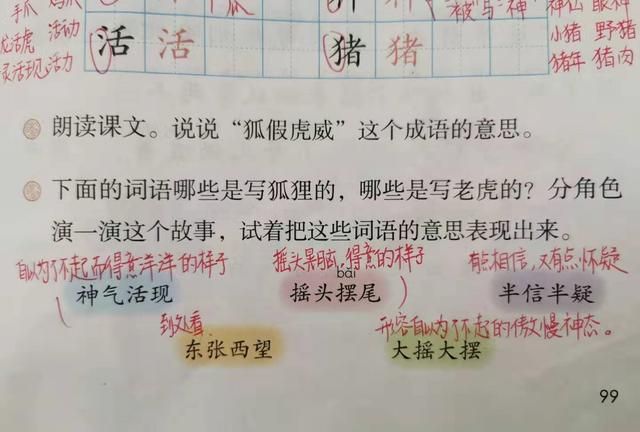 手抓
活动
活现 活力
活 活
猪 猪
"被"与"神"
神仙 眼神
小猪 野猪
猪年 猪肉
朗读课文。说说“狐假虎威”这个成语的意思。
下面的词语哪些是写狐狸的，哪些是写老虎的？分角色
演一演这个故事，试着把这些词语的意思表现出来。
自以为了不起而得意洋洋的样子 摇头晃脑,得意的样子 有点相信,又有点怀疑
bǎi
神气活现 摇头摆尾 半信半疑
到处看 形容自以为了不起的傲慢神态。
东张西望 大摇大摆
99